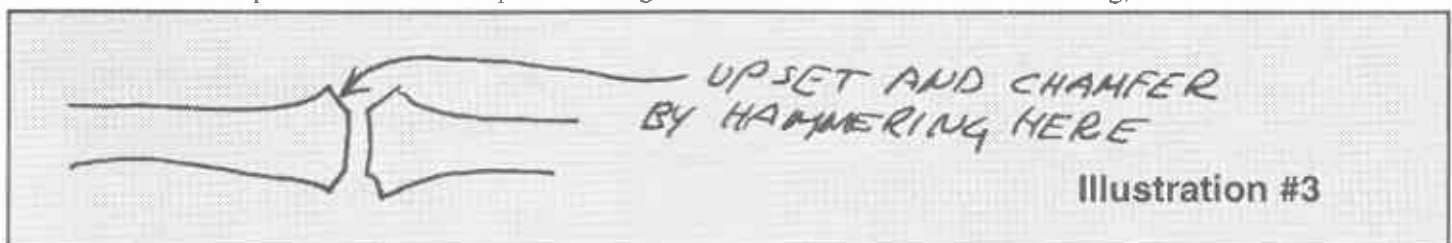 UPSET AND CHAMFER
BY HAMMERING HERE
Illustration #3